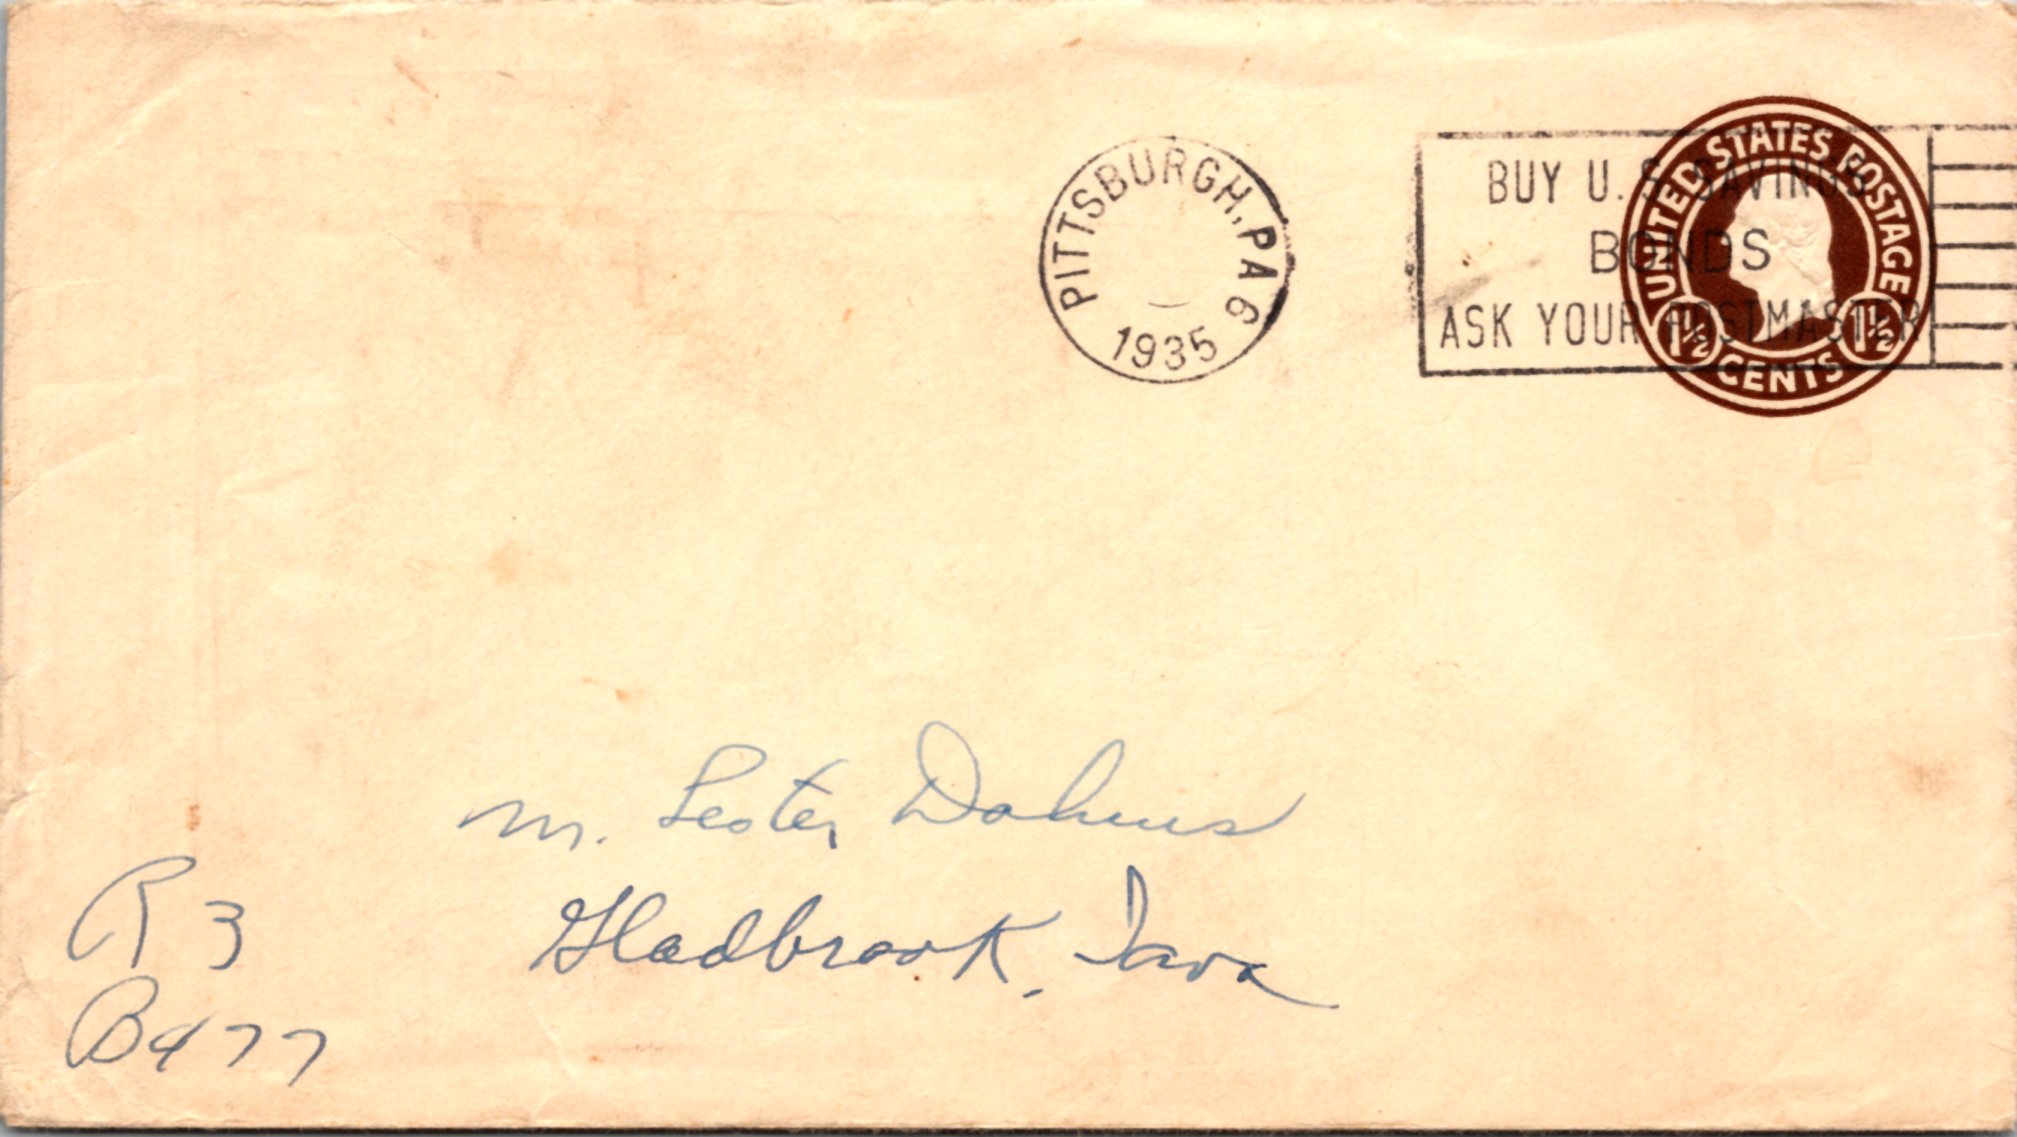 PITTSBURGH, PA 6
1935
BUY U. S. SAVINGS
BONDS
ASK YOUR POSTMASTER
UNITED STATES POSTAGE
1½ CENTS 1½
Mr. Lester Dahms
Gladbrook, Iowa
R 3
B 477